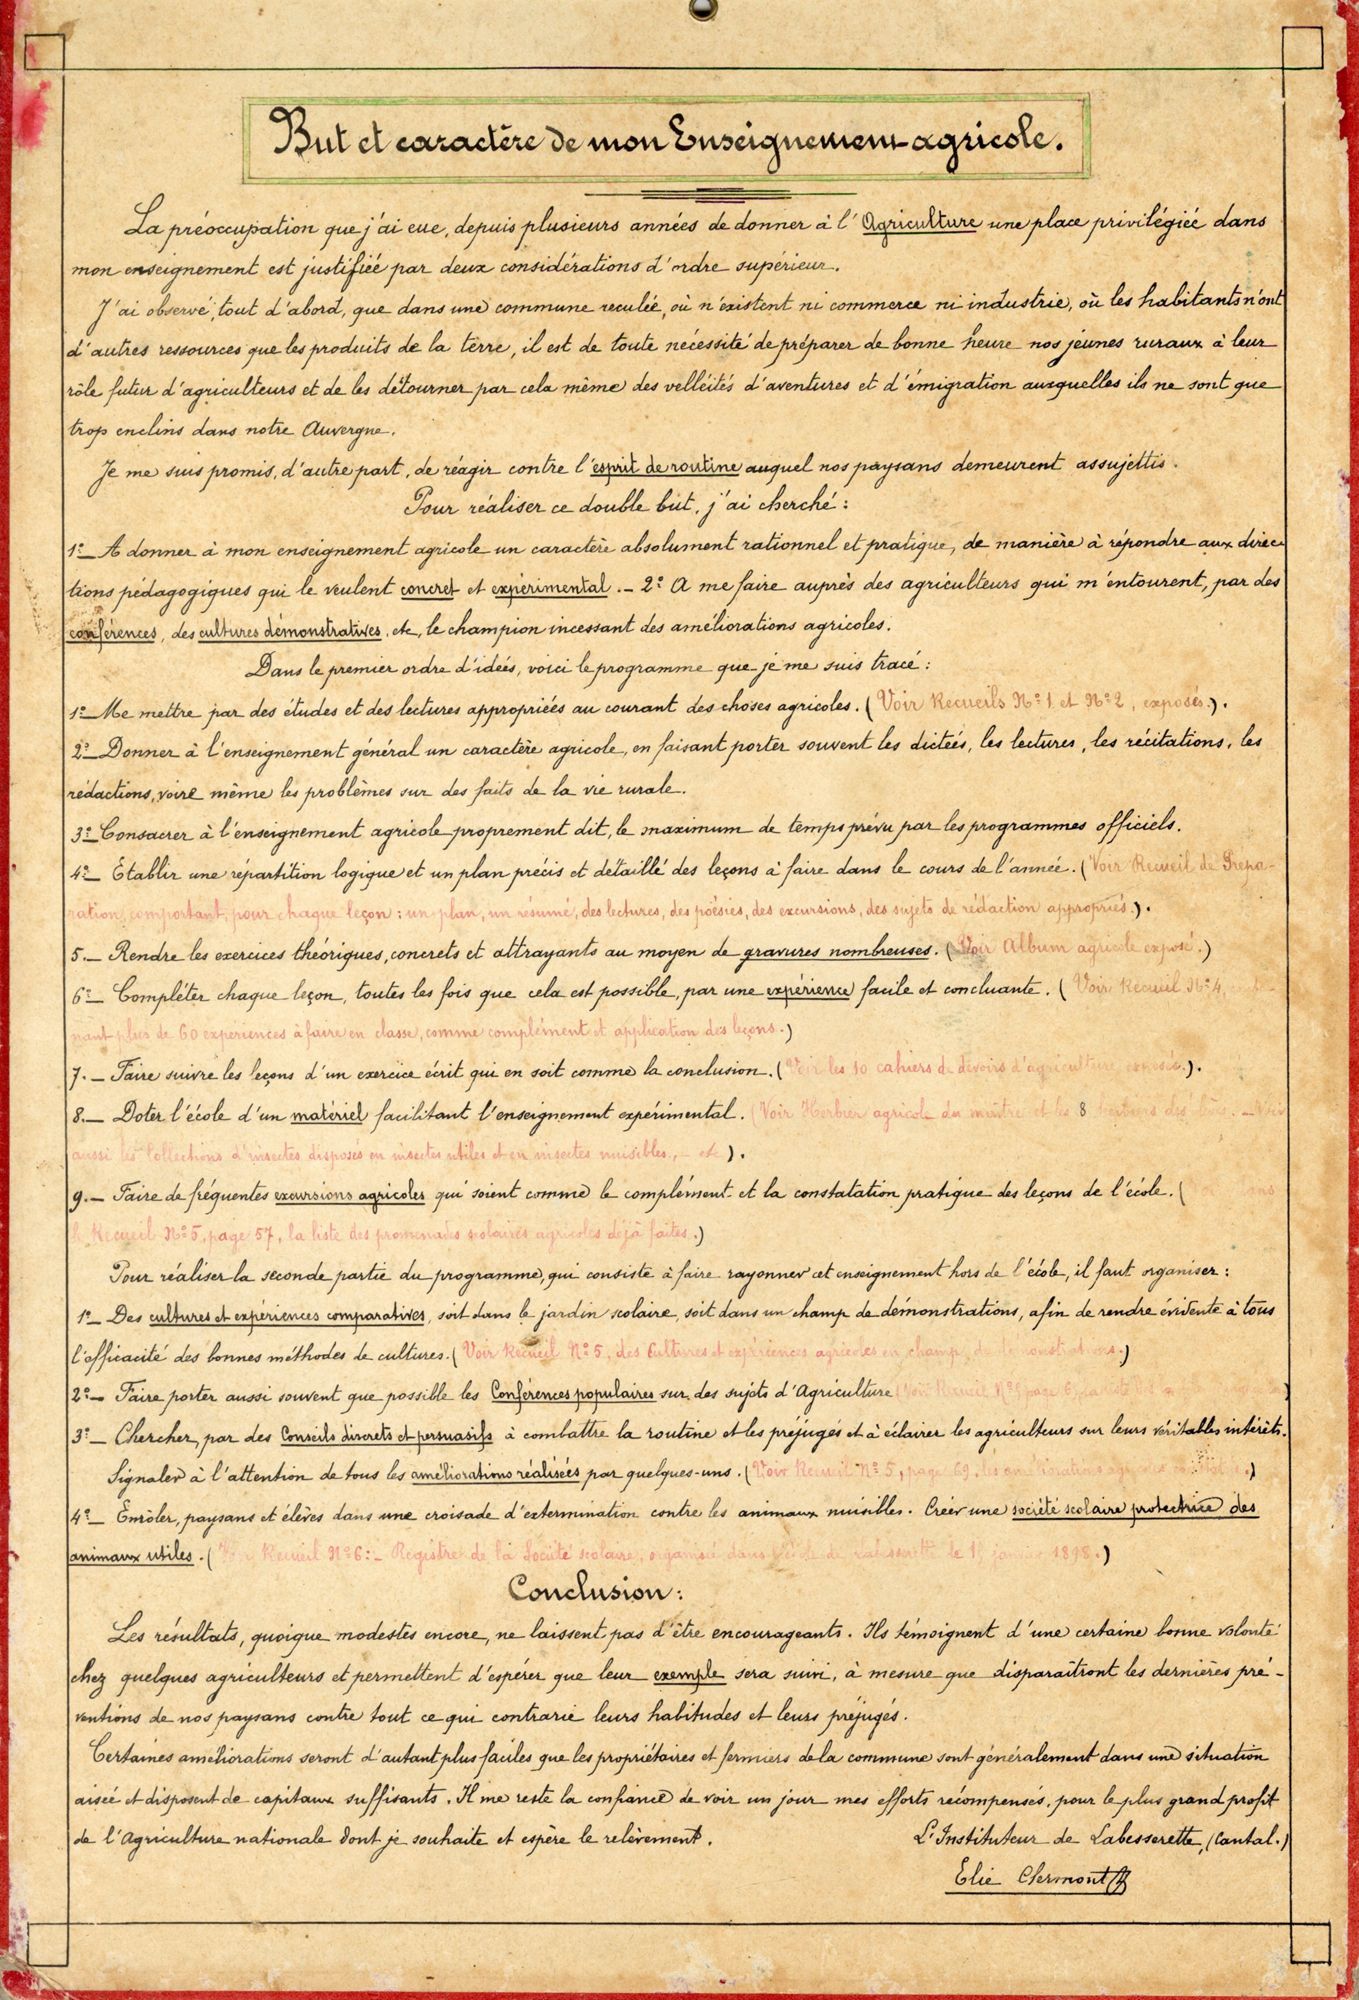 But et caractère de mon Enseignement agricole.
La préoccupation que j'ai eue, depuis plusieurs années de donner à l'Agriculture une place privilégiée dans
mon enseignement est justifiée par deux considérations d'ordre supérieur.
J'ai observé, tout d'abord, que dans une commune reculée, où n'existent ni commerce ni industrie, où les habitants n'ont
d'autres ressources que les produits de la terre, il est de toute nécessité de préparer de bonne heure nos jeunes ruraux à leur
rôle futur d'agriculteurs et de les détourner par cela même des velléités d'aventures et d'émigration auxquelles ils ne sont que
trop enclins dans notre Auvergne.
Je me suis promis, d'autre part, de réagir contre l'esprit de routine auquel nos paysans demeurent assujettis.
Pour réaliser ce double but, j'ai cherché :
1º_ A donner à mon enseignement agricole un caractère absolument rationnel et pratique, de manière à répondre aux direc-
tions pédagogiques qui le veulent concret et expérimental. _ 2º A me faire auprès des agriculteurs qui m'entourent, par des
conférences, des cultures démonstratives, etc, le champion incessant des améliorations agricoles.
Dans le premier ordre d'idées, voici le programme que je me suis tracé :
1º_ Me mettre par des études et des lectures appropriées au courant des choses agricoles. (Voir Recueils Nº 1 et Nº 2, exposés.).
2º_ Donner à l'enseignement général un caractère agricole, en faisant porter souvent les dictées, les lectures, les récitations, les
rédactions, voire même les problèmes sur des faits de la vie rurale.
3º_ Consacrer à l'enseignement agricole proprement dit, le maximum de temps prévu par les programmes officiels.
4º_ Etablir une répartition logique et un plan précis et détaillé des leçons à faire dans le cours de l'année. (Voir Recueil de Prépa-
ration, comportant, pour chaque leçon : un plan, un résumé, des lectures, des poésies, des excursions, des sujets de rédaction appropriés.).
5._ Rendre les exercices théoriques, concrets et attrayants au moyen de gravures nombreuses. (Voir Album agricole exposé.)
6º_ Compléter chaque leçon, toutes les fois que cela est possible, par une expérience facile et concluante. (Voir Recueil Nº 4, conte-
nant plus de 60 expériences à faire en classe, comme complément et application des leçons.)
7._ Faire suivre les leçons d'un exercice écrit qui en soit comme la conclusion. (Voir les 10 cahiers de devoirs d'agriculture exposés.).
8._ Doter l'école d'un matériel facilitant l'enseignement expérimental. (Voir Herbier agricole du maître et les 8 des _ Voir
aussi les Collections d'insectes disposés en insectes utiles et en insectes nuisibles, _ etc ).
9._ Faire de fréquentes excursions agricoles qui soient comme le complément et la constatation pratique des leçons de l'école. (
le Recueil Nº 5, page 57, la liste des promenades scolaires agricoles déjà faites.)
Pour réaliser la seconde partie du programme, qui consiste à faire rayonner cet enseignement hors de l'école, il faut organiser :
1º_ Des cultures et expériences comparatives, soit dans le jardin scolaire, soit dans un champ de démonstrations, afin de rendre évidente à tous
l'efficacité des bonnes méthodes de cultures. (Voir Recueil Nº 5, des Cultures et expériences agricoles en champ de démonstrations.)
2º_ Faire porter aussi souvent que possible les Conférences populaires sur des sujets d'Agriculture (Voir Recueil page )
3º_ Chercher, par des Conseils discrets et persuasifs à combattre la routine et les préjugés et à éclairer les agriculteurs sur leurs véritables intérêts.
Signaler à l'attention de tous les améliorations réalisées par quelques-uns. (Voir Recueil Nº 5, page 69, les améliorations )
4º_ Enrôler, paysans et élèves dans une croisade d'extermination contre les animaux nuisibles. Créer une société scolaire protectrice des
animaux utiles. (Voir Recueil Nº 6 : _ Registre de la Société scolaire, organisée dans l'école de Labesserette le janvier 1898.)
Conclusion :
Les résultats, quoique modestes encore, ne laissent pas d'être encourageants. Ils témoignent d'une certaine bonne volonté
chez quelques agriculteurs et permettent d'espérer que leur exemple sera suivi, à mesure que disparaîtront les dernières pré-
ventions de nos paysans contre tout ce qui contrarie leurs habitudes et leurs préjugés.
Certaines améliorations seront d'autant plus faciles que les propriétaires et fermiers de la commune sont généralement dans une situation
aisée et disposent de capitaux suffisants. Il me reste la confiance de voir un jour mes efforts récompensés, pour le plus grand profit
de l'Agriculture nationale dont je souhaite et espère le relèvement.
L'Instituteur de Labesserette, (Cantal.)
Elie Clermont